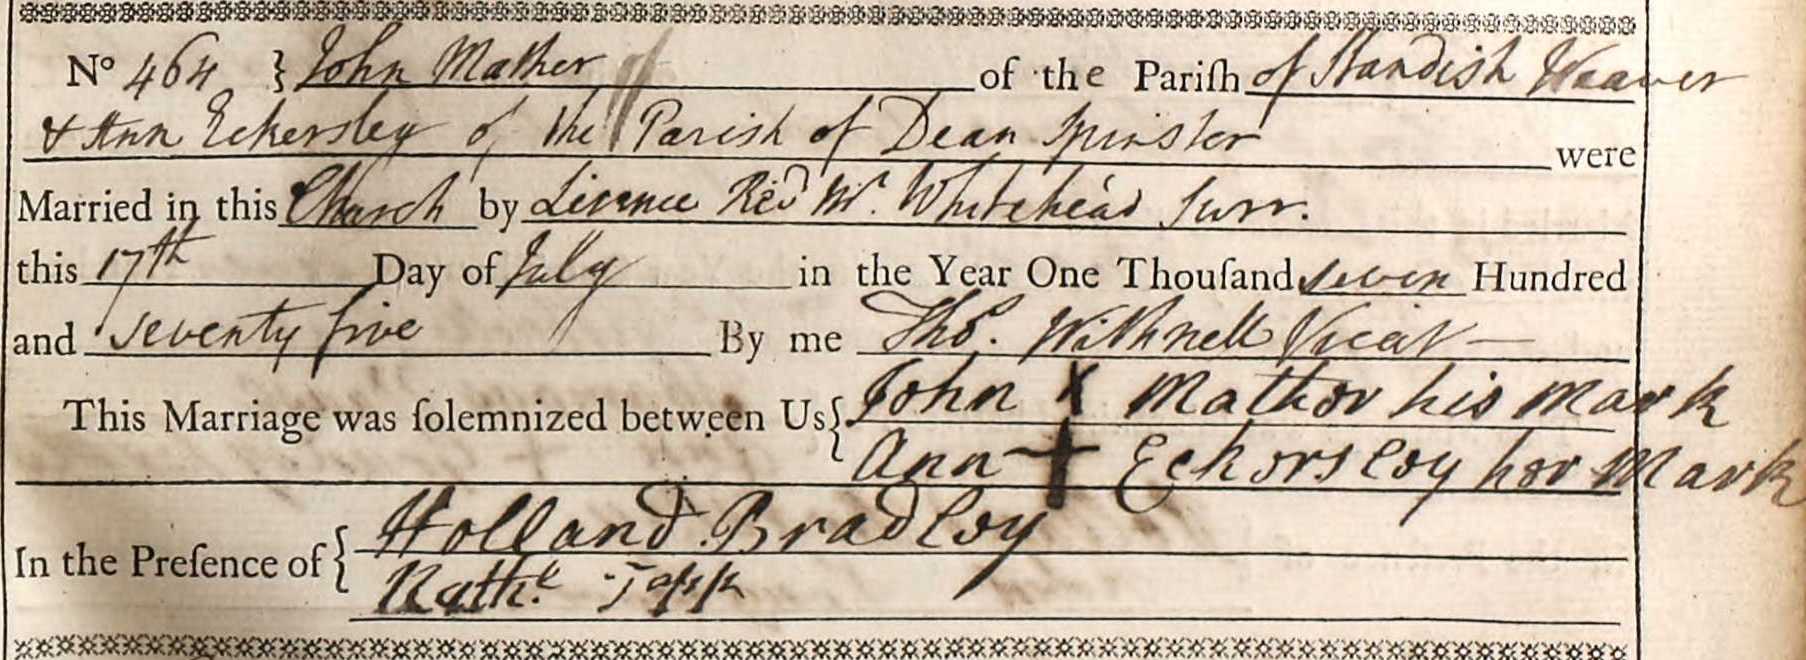 No 464 } John Mather of the Pariſh of Standish Weaver
& Ann Eckersley of the Parish of Dean Spinster were
Married in this Church by Licence Revd Mr. Whitehead Surr.
this 17th Day of July in the Year One Thouſand seven Hundred
and seventy five By me Thos. Withnell Vicar
This Marriage was ſolemnized between Us { John X Mather his Mark
Ann + Eckersley her Mark
In the Preſence of { Holland Bradley
Nathl.